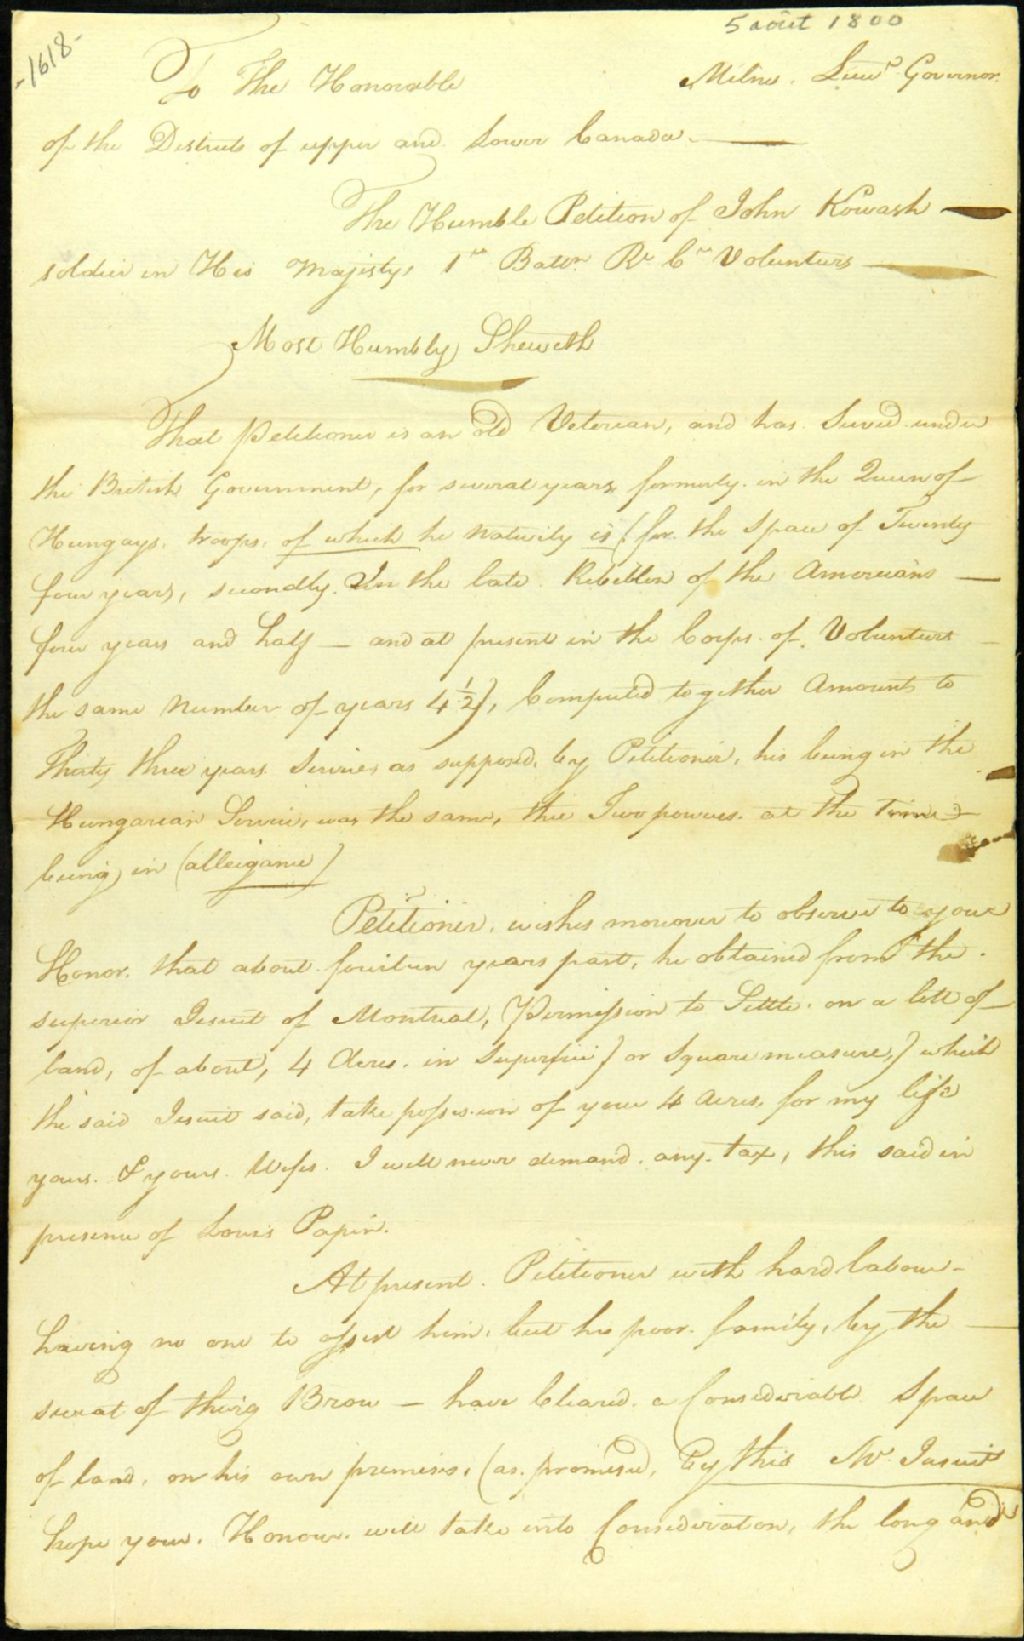 5 août 1800
-1618-
To The Honorable Milne. Lieut. Governor.
of the Districts of upper and Lower Canada.
The Humble Petition of John Kowash
soldier in His Majestys 1st Baton Rl Cn Volunteers
Most Humbly Sheweth
That Petitioner is an old Veterean, and has Served under
the British Government, for several years, formerly in the Queen of
Hungays. troops. of which he Nativity is (for the Space of Twenty
four years, secondly. In the late Rebellion of the Amoricans
four years and half - and at present in the Corps. of. Volunteers
the same Number of years 4½), Computed together Amounts to
Thirty three years Servies as supposed, by Petitioner, his being in the
Hungarian Servic, was the same, the Two powers at the time
being in (alleigance)
Petitioner, wishes moreover to observe to your
Honor. that about fourteen years past, he obtained from the
superior Jesuit of Montreal, Permission to Settle on a lott of
land, of about, 4 Acres. in Superficie) or Square measure,) which
the said Jesuit said, take possession of your 4 Acres, for my life
yours. & yours Wifes. I will never demand any tax, this said in
presence of Louis Papin.
At present. Petitioner with hard labour
having no one to assist him, but his poor family, by the
sweat of theirg Brow - have Cleared a Considerable Space
of land, on his own premises, (as promised, by this Mr Jesuit
hope your Honour will take into Consideration, the long and